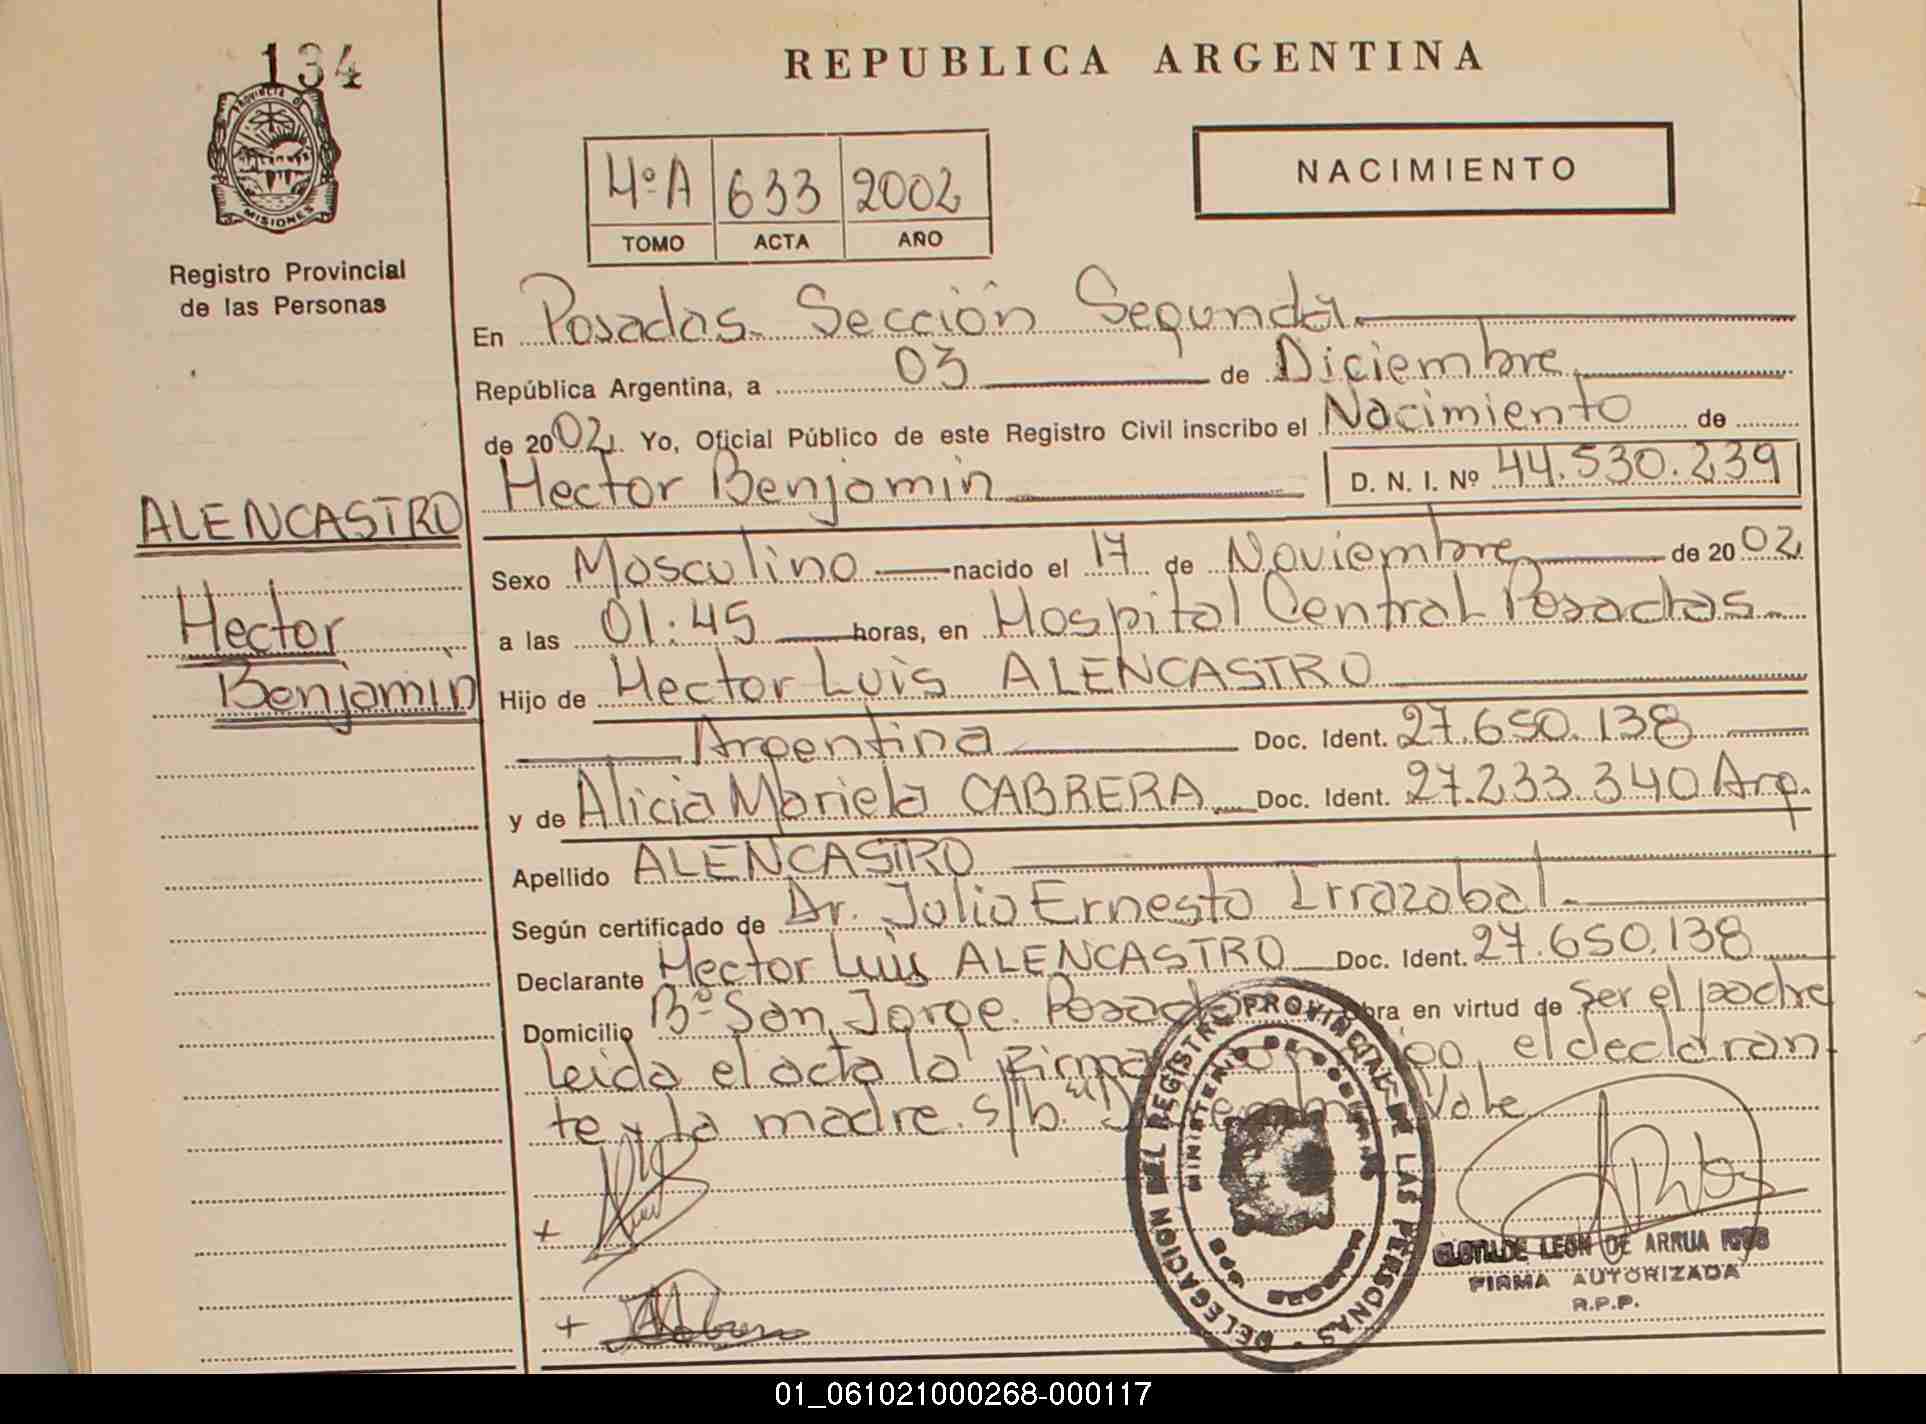 134
PROVINCIA DE
MISIONES
Registro Provincial
de las Personas
REPUBLICA ARGENTINA
4º A 633 2002
TOMO ACTA AÑO
NACIMIENTO
En Posadas. Sección Segunda.
República Argentina, a 03 de Diciembre
de 2002. Yo, Oficial Público de este Registro Civil inscribo el Nacimiento de
Hector Benjamin D. N. I. Nº 44.530.239
ALENCASTRO
Hector
Benjamin
Sexo Masculino nacido el 17 de Noviembre de 2002
a las 01:45 horas, en Hospital Central Posadas.
Hijo de Hector Luis ALENCASTRO
Argentina Doc. Ident. 27.650.138
y de Alicia Mariela CABRERA Doc. Ident. 27.233.340 Arg.
Apellido ALENCASTRO
Según certificado de Dr. Julio Ernesto Irrazabal.
Declarante Hector Luis ALENCASTRO Doc. Ident. 27.650.138
Domicilio Bº San Jorge. Posadas obra en virtud de ser el padre
Leida el acta la firma el declaran
te y la madre. s/b. Vale
DELEGACION DEL REGISTRO PROVINCIAL DE LAS PERSONAS
MINISTERIO DE GOBIERNO
CLOTILDE LEON DE ARRUA
FIRMA AUTORIZADA
R.P.P.
01_061021000268-000117